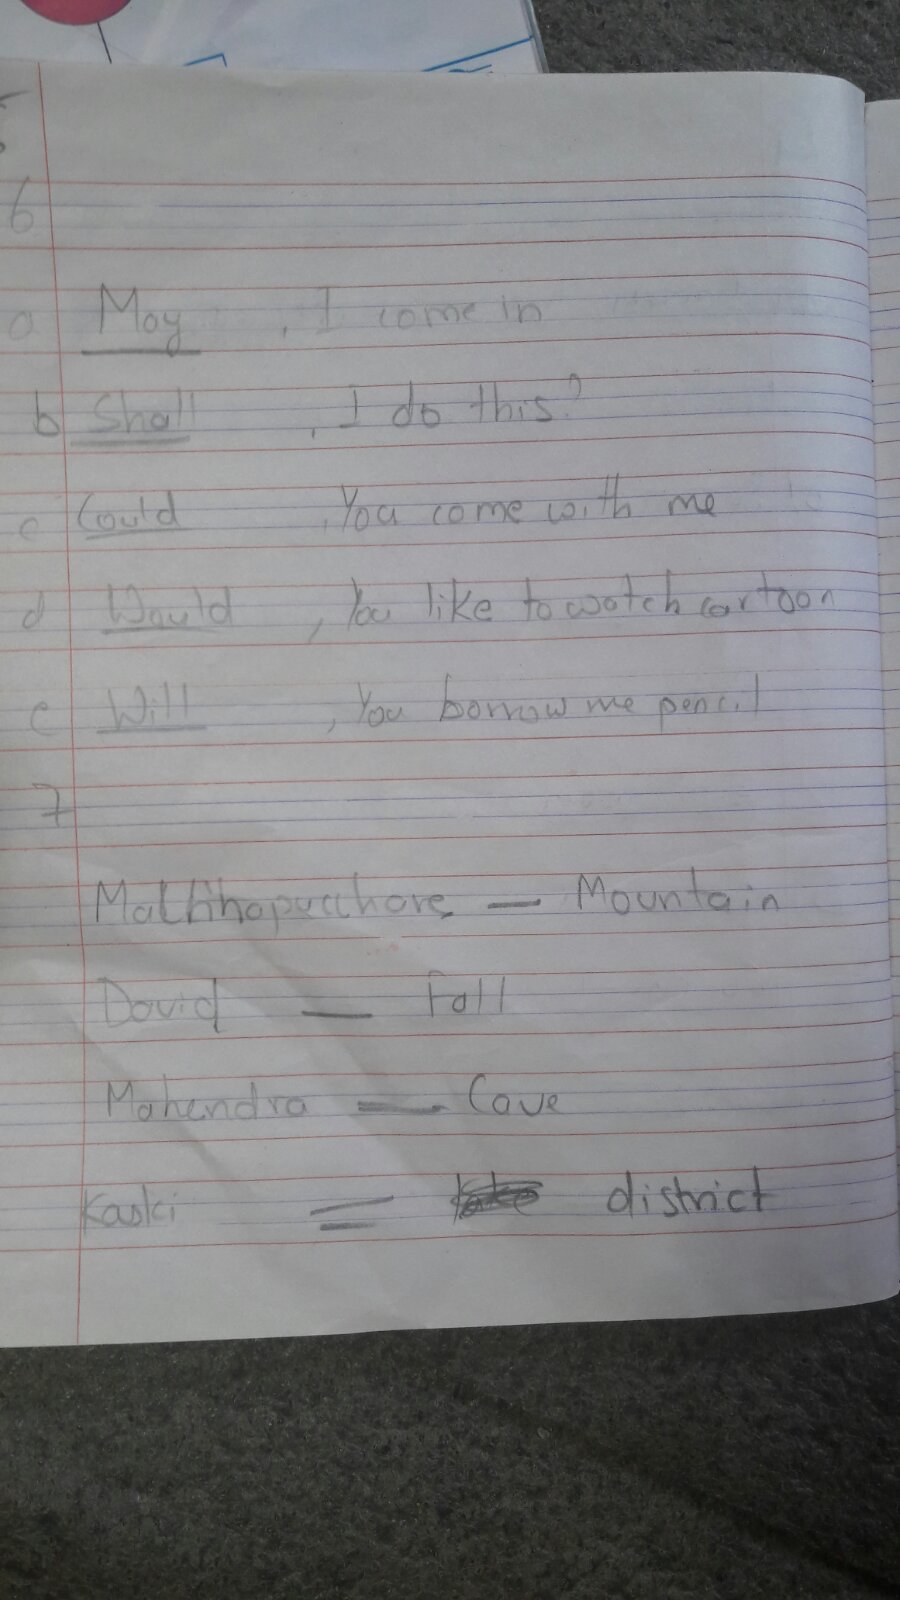 6
a May , I come in
b Shall , I do this?
c Could , You come with me
d Would , You like to watch cartoon
e Will , You borrow me pencil
7
— Mountain
David — Fall
Mahendra — Cave
Kaski = district